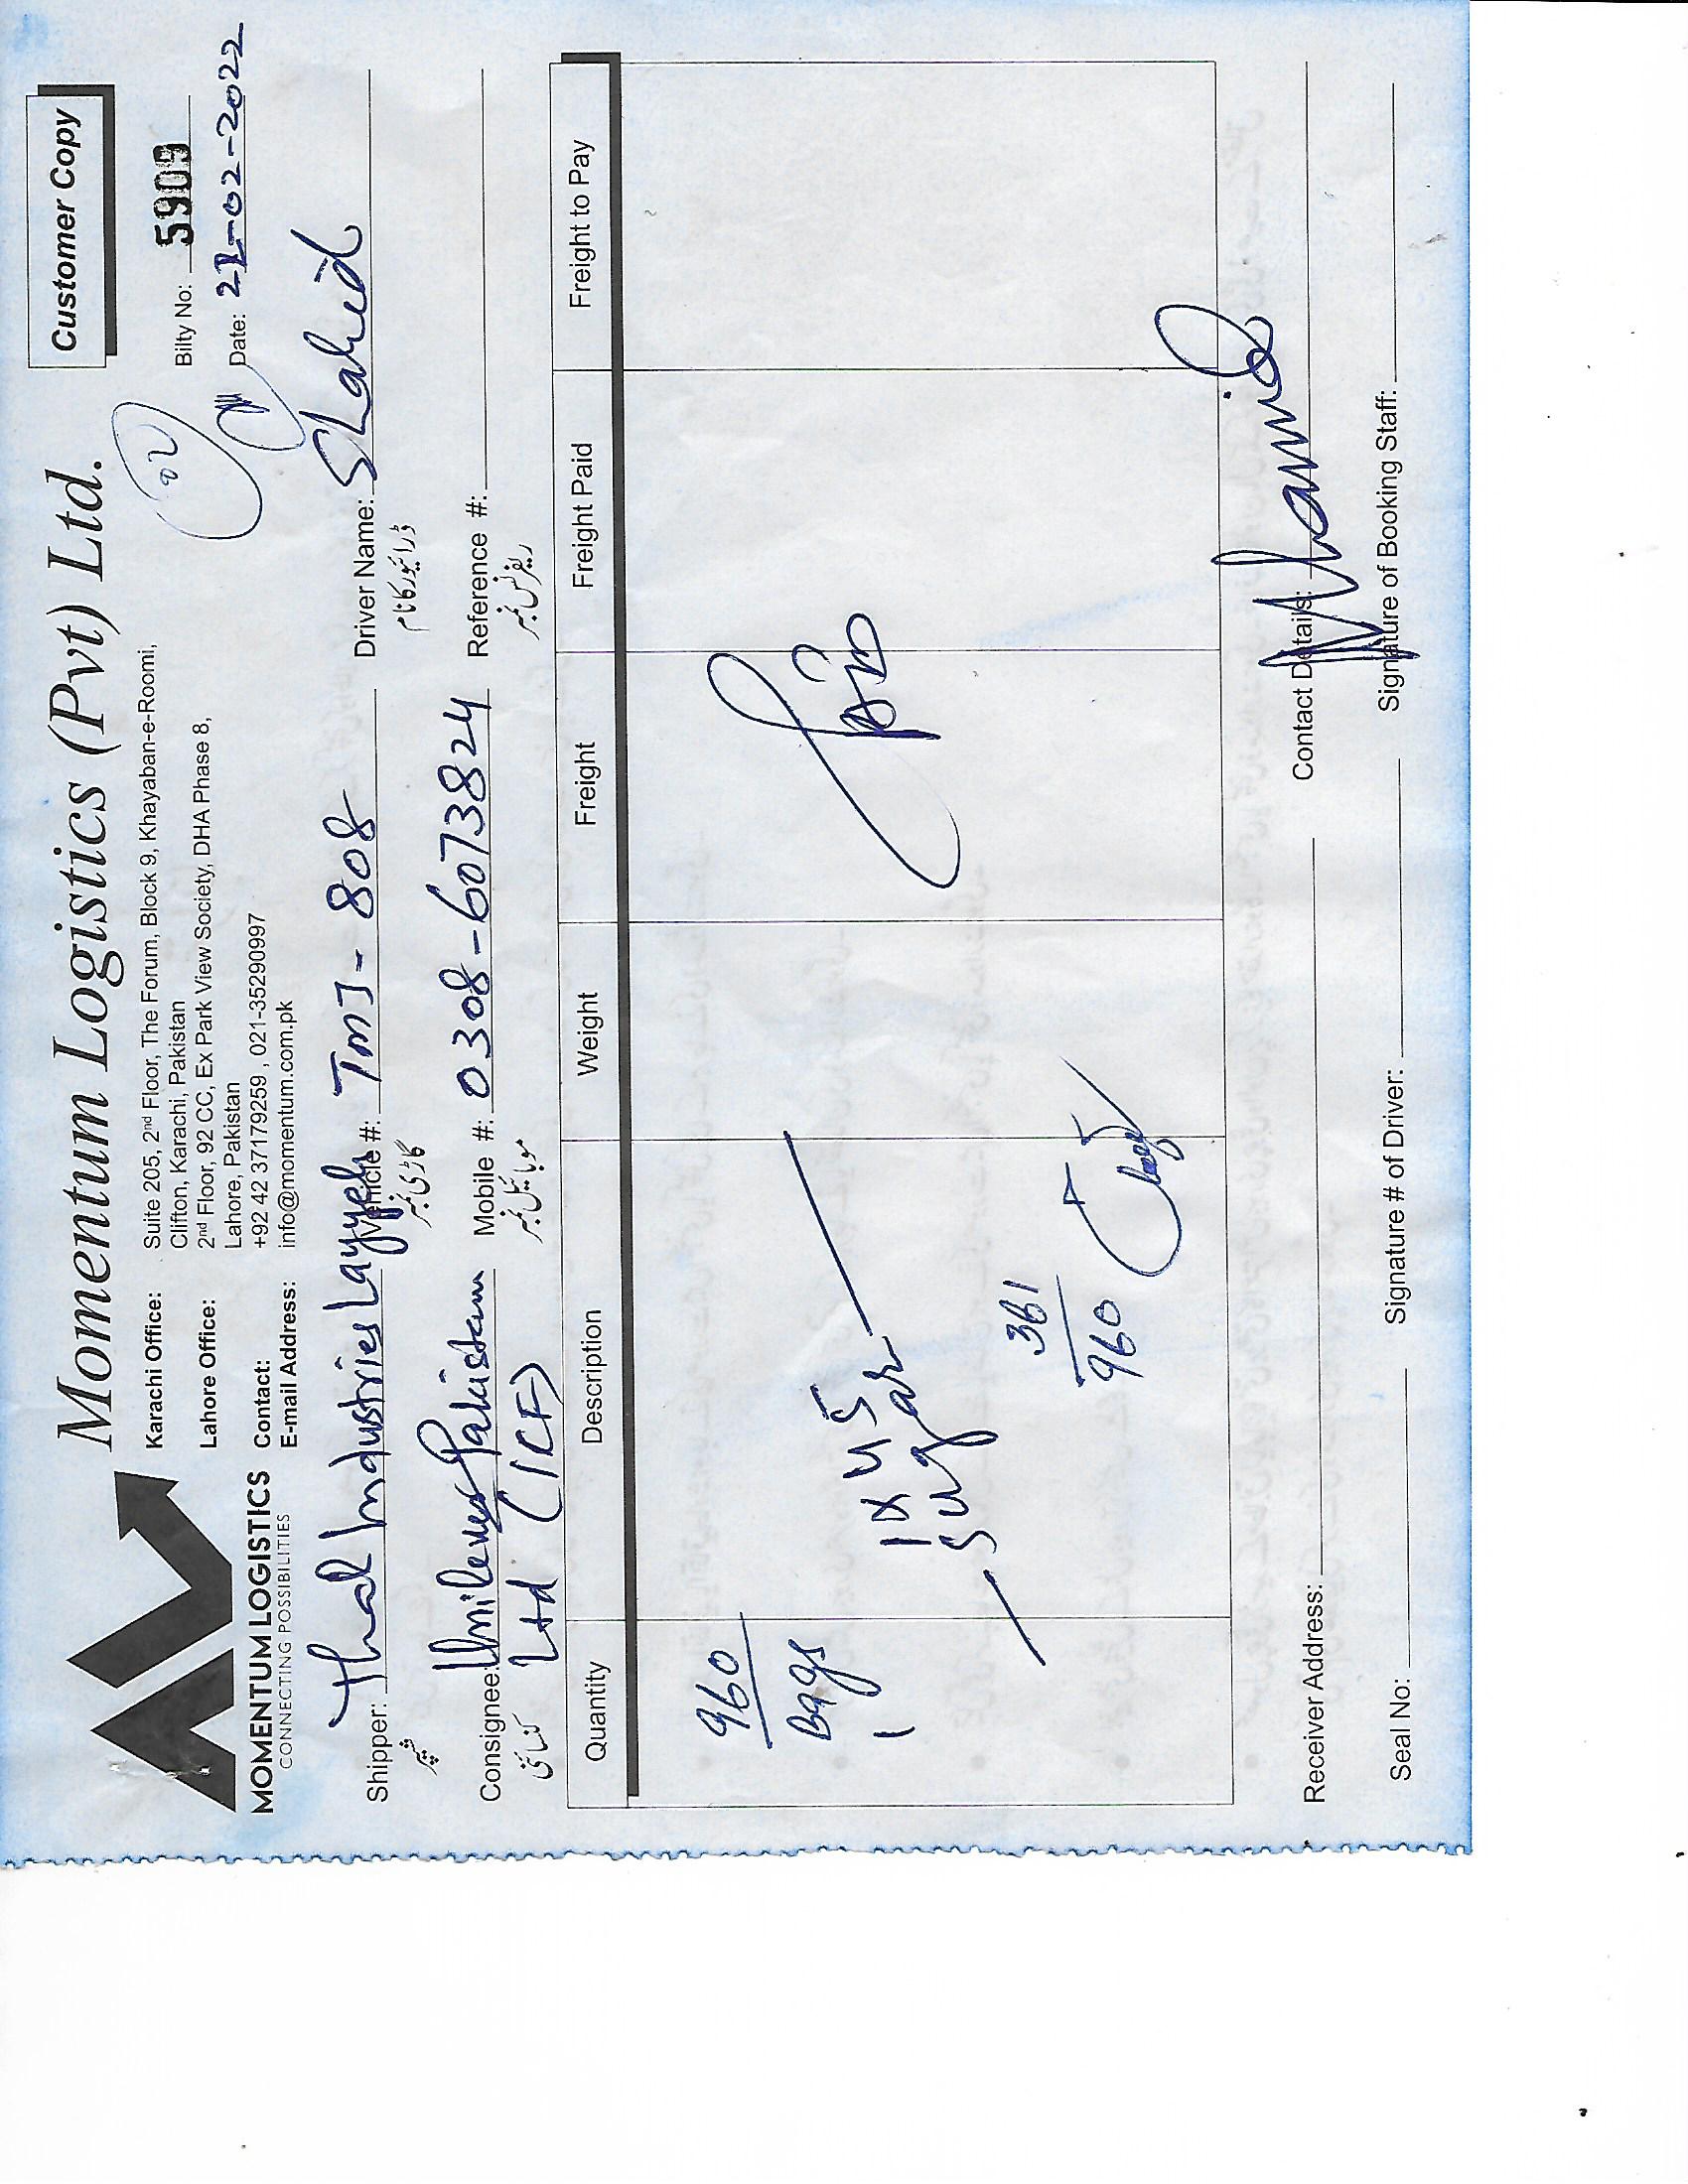 Momentum Logistics (Pvt) Ltd.
Customer Copy
MOMENTUM LOGISTICS
CONNECTING POSSIBILITIES
Karachi Office: Suite 205, 2nd Floor, The Forum, Block 9, Khayaban-e-Roomi,
Clifton, Karachi, Pakistan
Lahore Office: 2nd Floor, 92 CC, Ex Park View Society, DHA Phase 8,
Lahore, Pakistan
Contact: +92 42 37179259 , 021-35290997
E-mail Address: info@momentum.com.pk
02
Bilty No: 5909
Date: -02-2022
Shipper: Thal Industries Layyah Vehicle #: TMJ-808 Driver Name: Shahid
شپر گاڑی نمبر ڈرائیور کا نام
Consignee: Unilever Pakistan Mobile #: 0308-6073824 Reference #:
کنسائنی Ltd (ICF) موبائیل نمبر ریفرنس نمبر
Quantity Description Weight Freight Freight Paid Freight to Pay
960
Bags
1x45
sugar
361
960
Receiver Address: Contact Details:
Seal No: Signature # of Driver: Signature of Booking Staff: